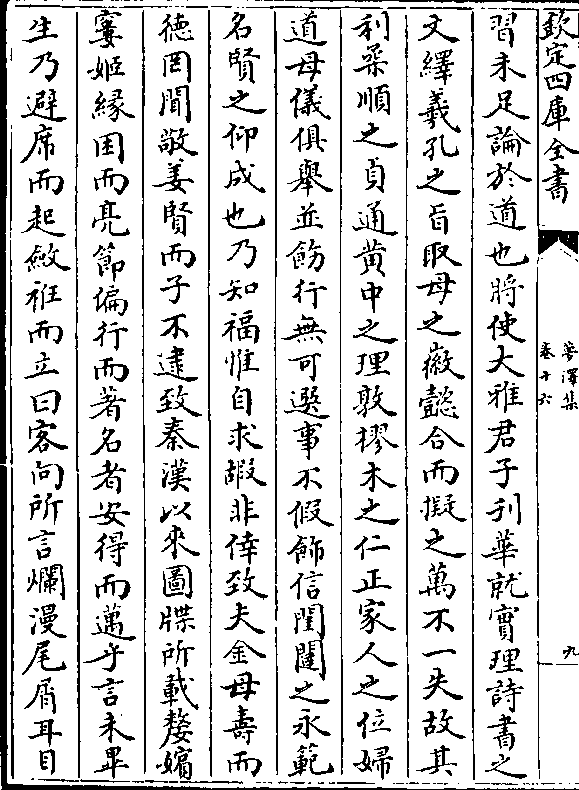 欽定四庫全書
夢澤集
卷十六
九
習未足論於道也將使大雅君子刋華就實理詩書之
文繹羲孔之旨取母之徽懿合而擬之萬不一失故其
利柔順之貞通黄中之理敦樛木之仁正家人之位婦
道母儀俱舉並飭行無可選事不假飾信閨闥之永範
名賢之仰成也乃知福惟自求嘏非倖致夫金母壽而
徳罔聞敬姜賢而子不逮致秦漢以來圖牒所載嫠孀
窶姬緣困而亮節偏行而著名者安得而邁乎言未畢
生乃避席而起斂袵而立曰客向所言爛漫尾屑耳目